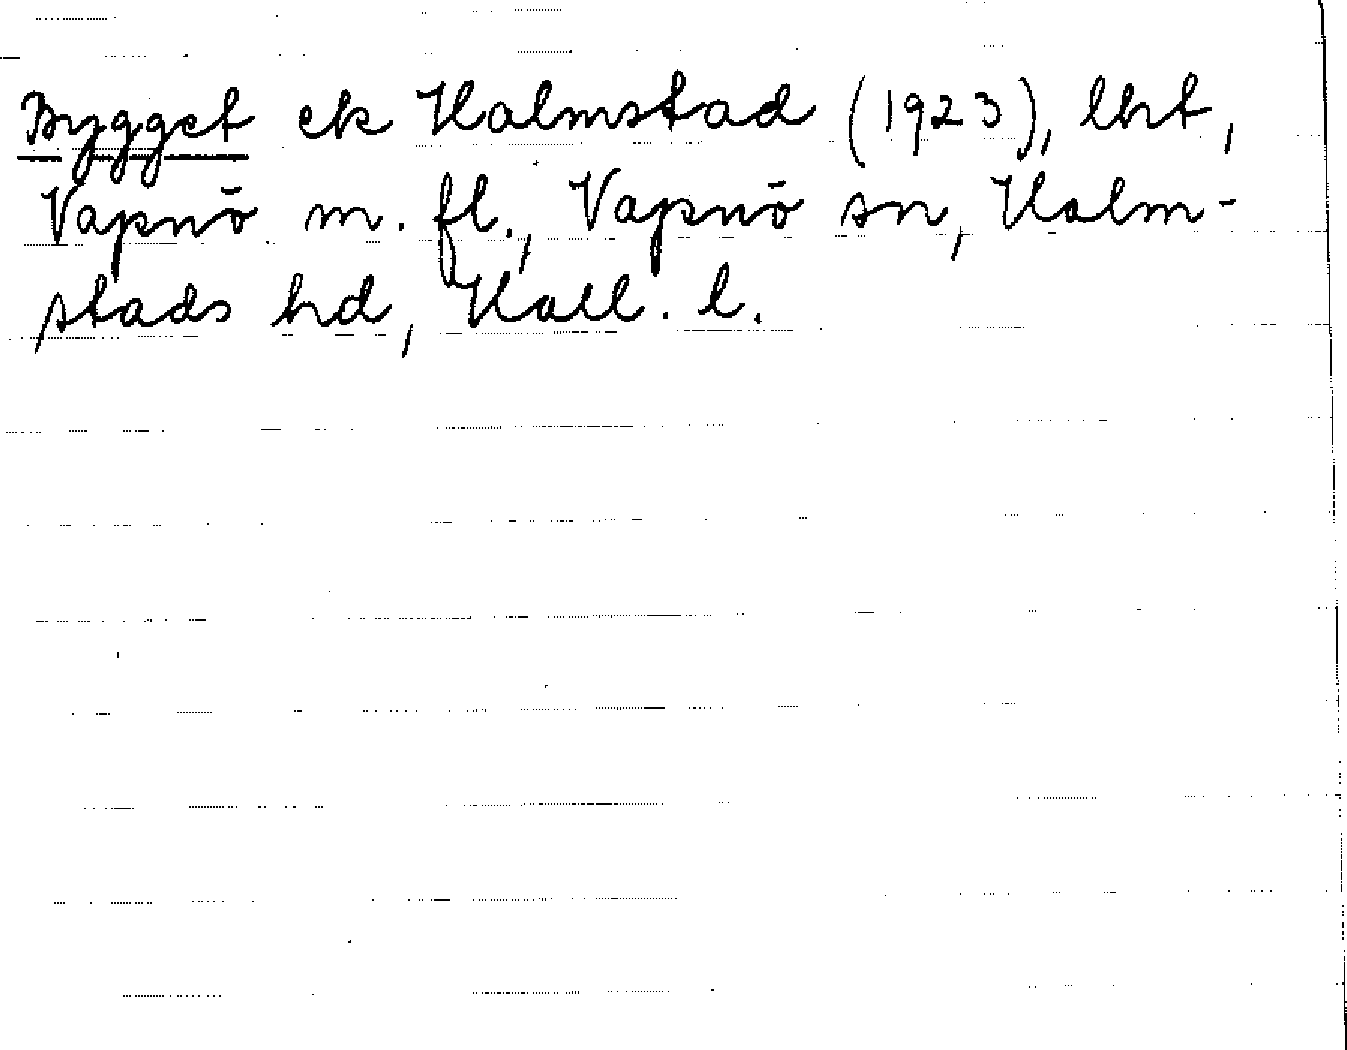 Bygget ek Halmstad (1923), lht,
Vapnö m. fl., Vapnö sn, Halm-
stads hd, Hall. l.